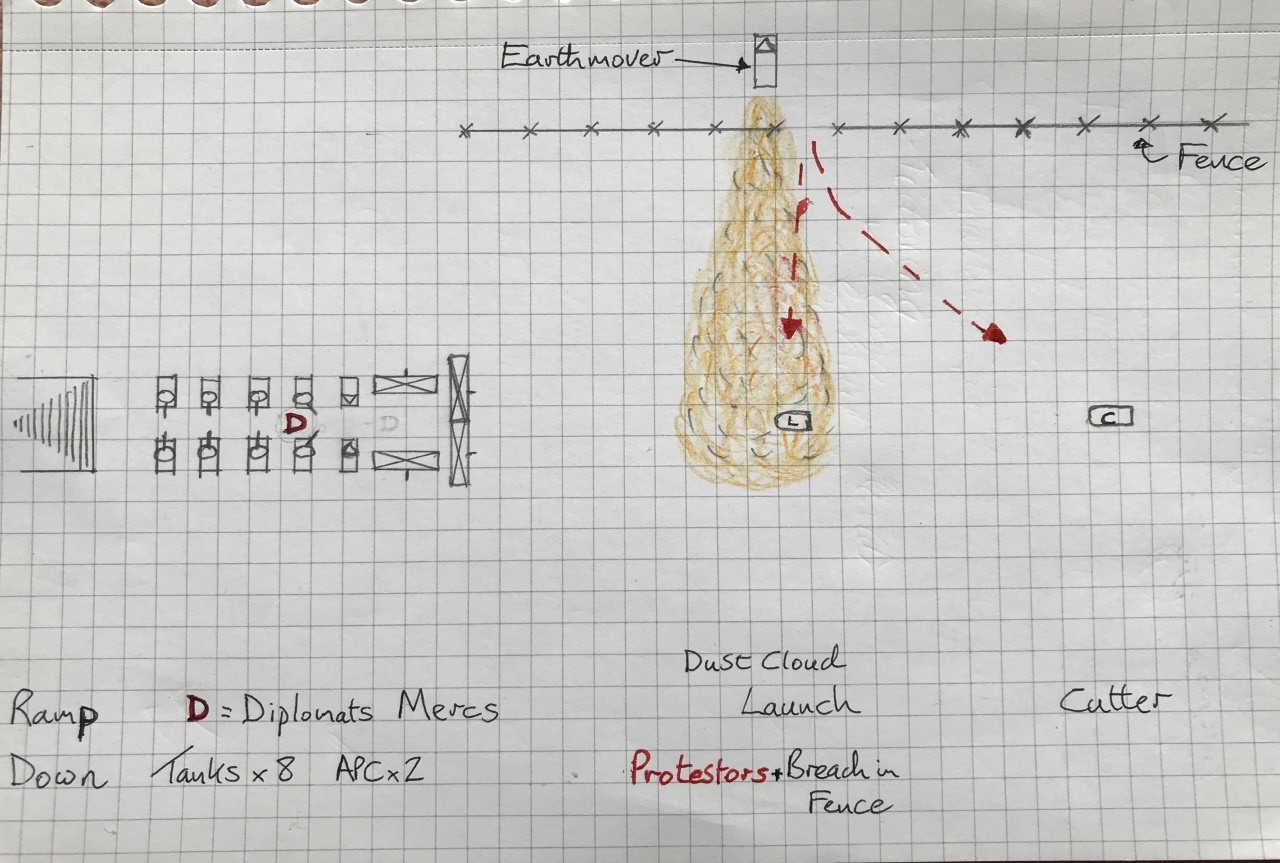 Earthmover
Fence
D
D
L
C
Dust Cloud
Launch
Cutter
Ramp
Down
D = Diplomats Mercs
Tanks x 8 APC x 2
Protestors + Breach in
Fence